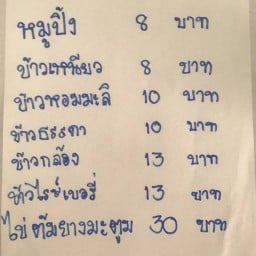 หมูปิ้ง 8 บาท
ข้าวเหนียว 8 บาท
ข้าวหอมมะลิ 10 บาท
ข้าวธรรดา 10 บาท
ข้าวกล้อง 13 บาท
ข้าวไรซ์เบอรี่ 13 บาท
ไข่ต้มยางมะตูม 30 บาท